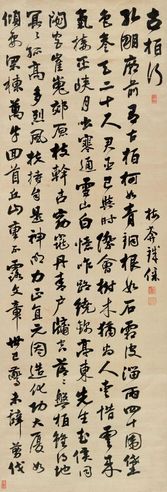 古柏行
孔明廟前有古柏柯如青銅根如石霜皮溜雨四十圍黛
色參天二千尺君臣已與時際會樹木猶為人愛惜雲來
氣接巫峽月出寒通雪山白憶昨路繞錦亭東先主武侯同
閟宮崔嵬郊原枝幹古窈窕丹青戶牖空落落盤踞雖得地
冥冥孤高多烈風扶持自是神明力正直元因造化功大廈如
傾要梁棟萬牛回首丘山重不露文章世已驚未辭翦伐